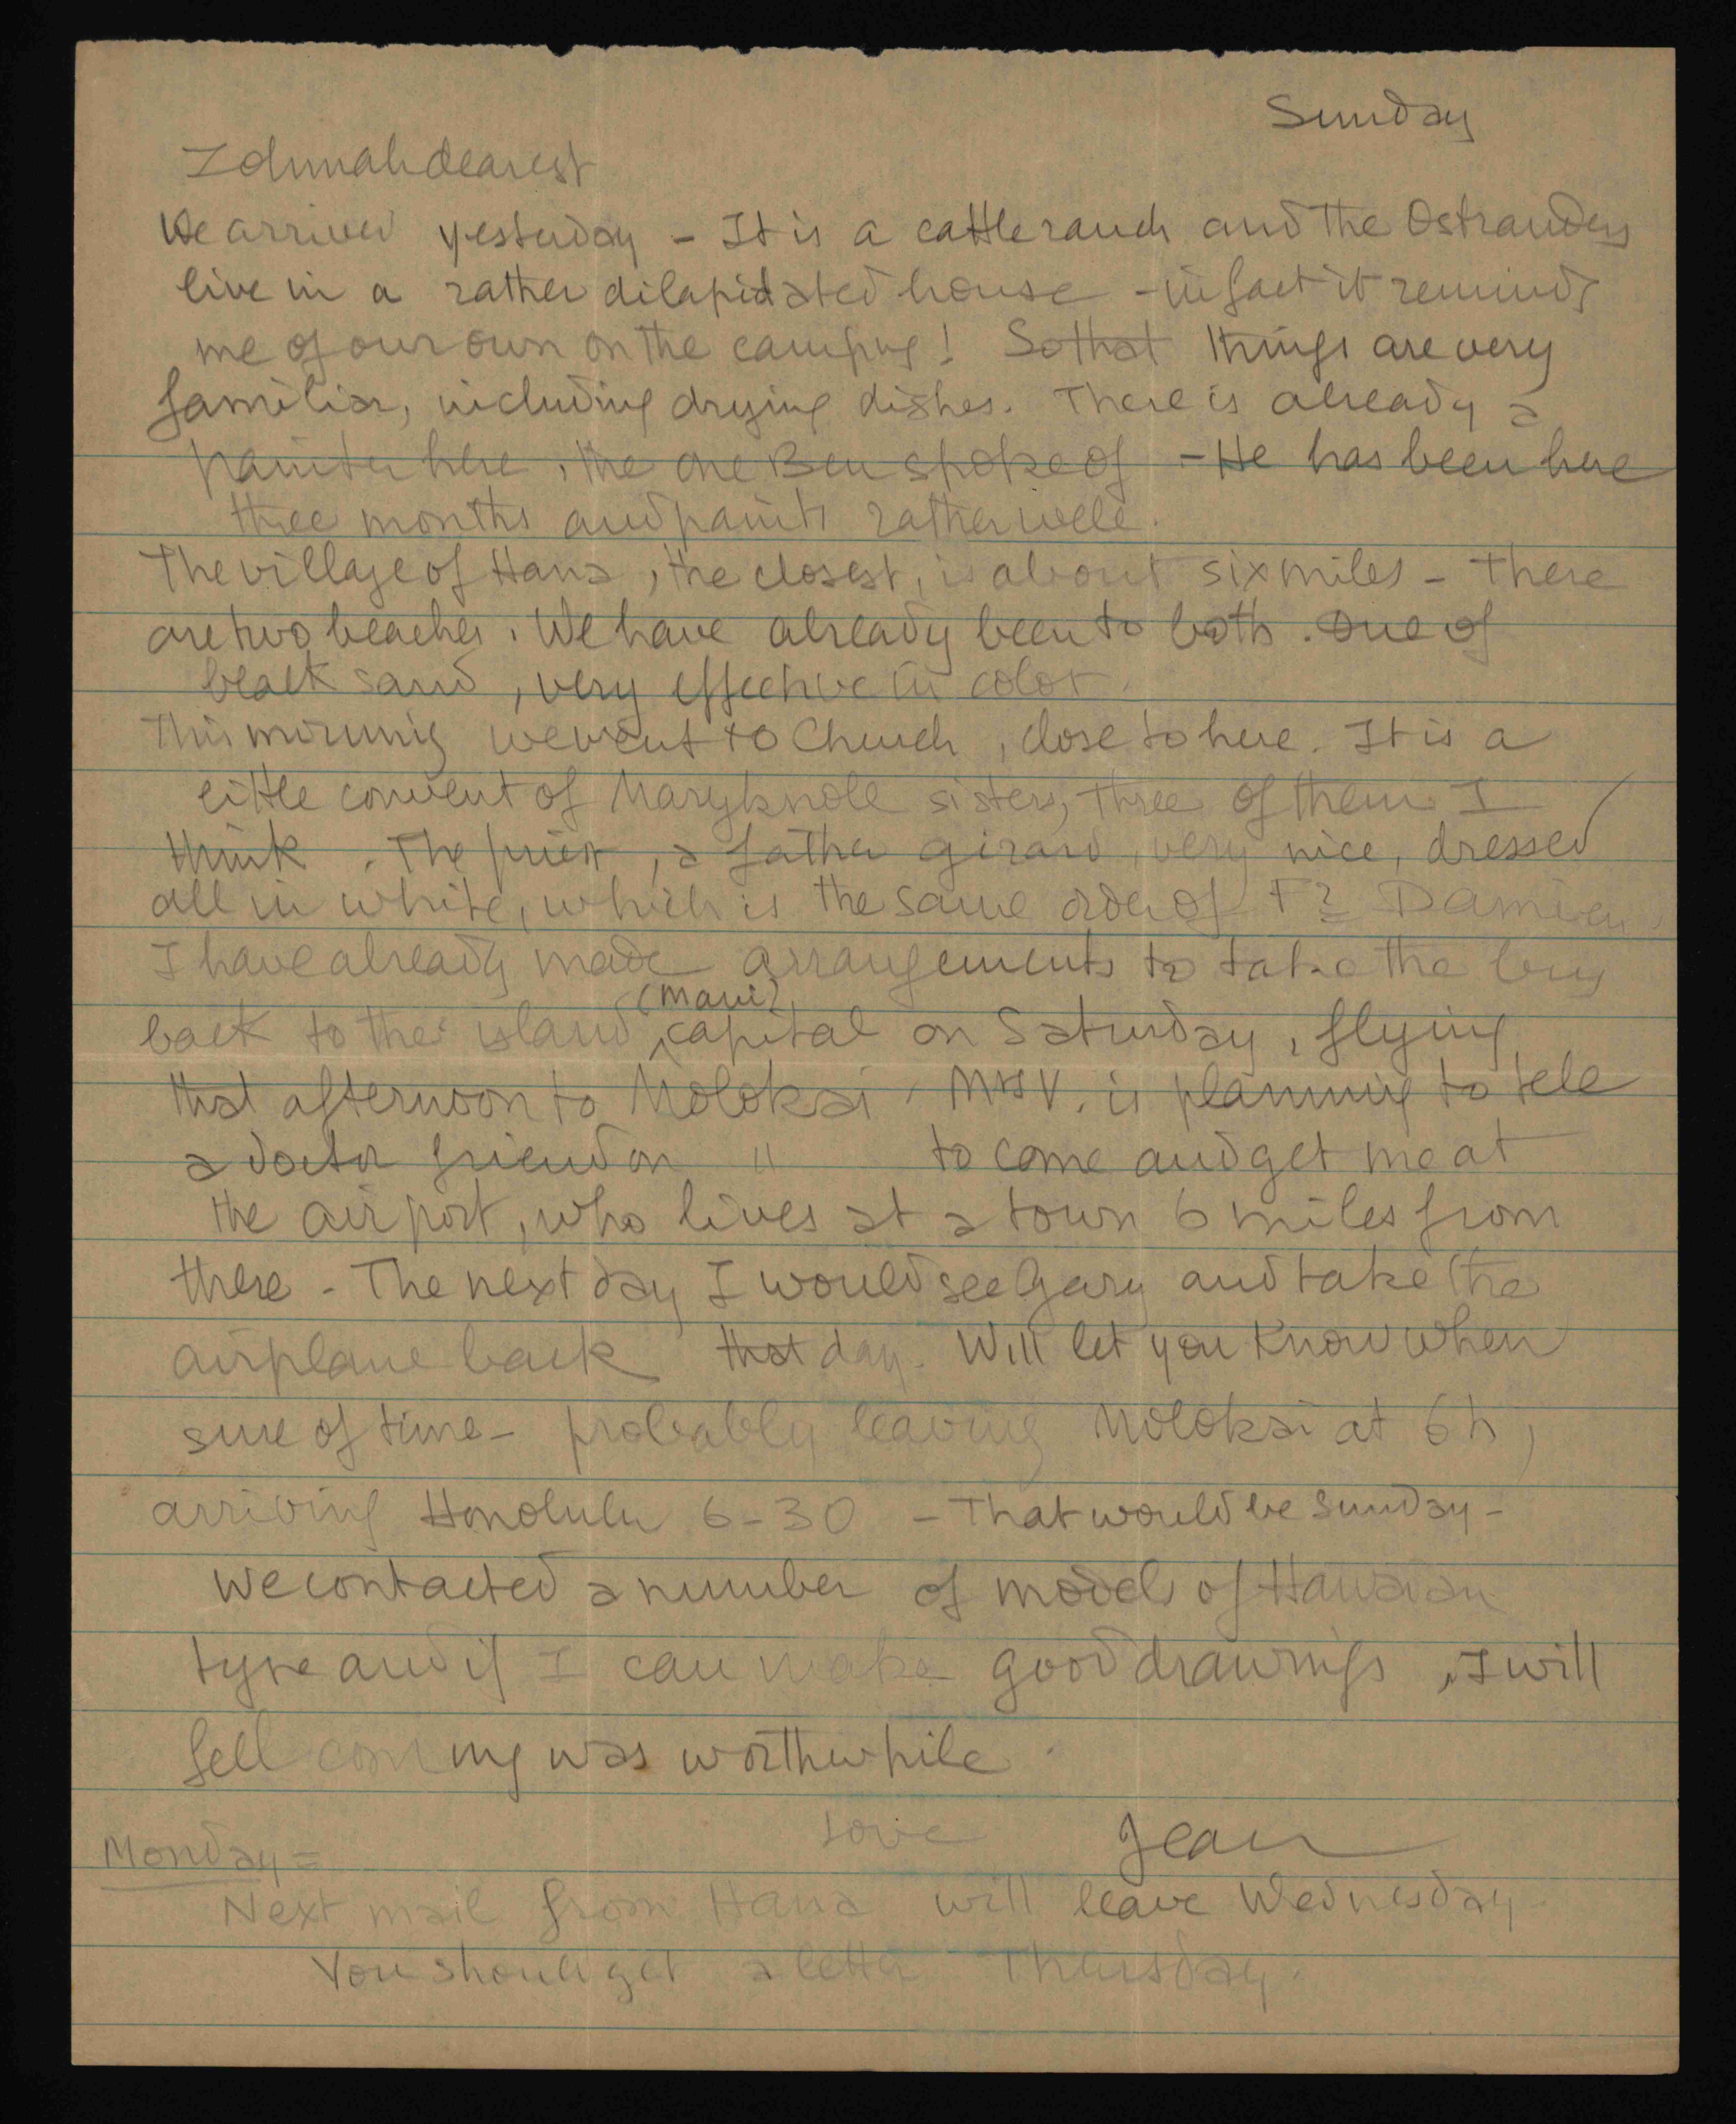 Sunday
Zohmah dearest
We arrived yesterday - It is a cattle ranch and the Ostranders
live in a rather dilapidated house - in fact it reminds
me of our own on the campus! So that things are very
familiar, including drying dishes. There is already a
painter here, the one Ben spoke of - He has been here
three months and paints rather well.
The village of Hana, the closest, is about six miles - There
are two beaches. We have already been to both. One of
black sand, very effective in color.
This morning we went to Church, close to here. It is a
little convent of Maryknoll sisters, three of them I
think. The priest, a father Girard, very nice, dressed
all in white, which is the same order of Fr Damien.
I have already made arrangements to take the bus
(Maui)
back to the island capital on Saturday, flying
that afternoon to Molokai. Mrs V. is planning to tele
a doctor friend on " to come and get me at
the airport, who lives at a town 6 miles from
there - The next day I would see Gary and take the
airplane back that day. Will let you know when
sure of time - probably leaving Molokai at 6h,
arriving Honolulu 6-30 - That would be Sunday -
We contacted a number of models of Hawaian
type and if I can make good drawings, I will
fell comming was worthwhile.
Love Jean
Monday =
Next mail from Hana will leave Wednesday.
You should get a letter Thursday.